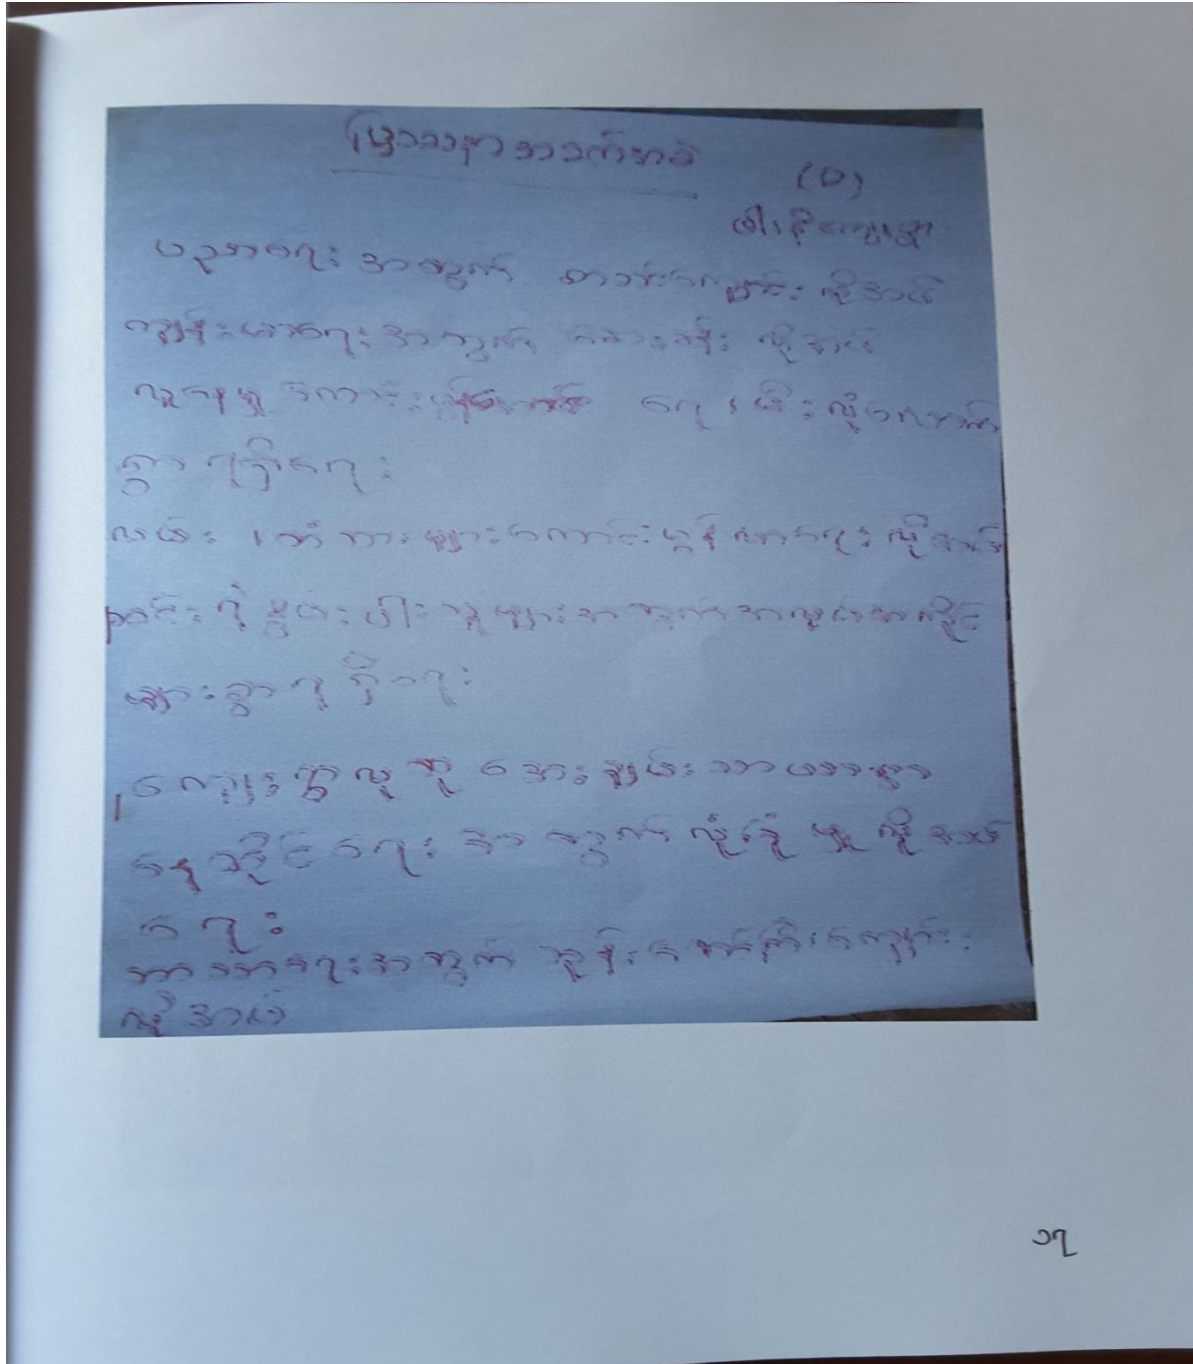 ပြဿနာအခက်အခဲ
(၁)
ပညာရေး အတွက် စာသင်ကျောင်း လိုအပ်
ကျန်းမာရေးအတွက် ဆေးခန်း လိုအပ်
လူနေမှု ကောင်း ရေ၊ မီး လုံလောက်
စွာ ရရှိရေး
လမ်း ၊ တံတား များကောင်းမွန်လာရေး လိုအပ်
နွမ်းပါးသူများအတွက် အလုပ်အကိုင်
များစွာ ရရှိရေး
ကျေးရွာလူထု အေးချမ်းသာယာစွာ
နေထိုင်ရေး အတွက် လုံခြုံမှု လိုအပ်
ရေး
ဘာသာရေးအတွက် ဘုန်းတော်ကြီးကျောင်း
လိုအပ်
၁၇